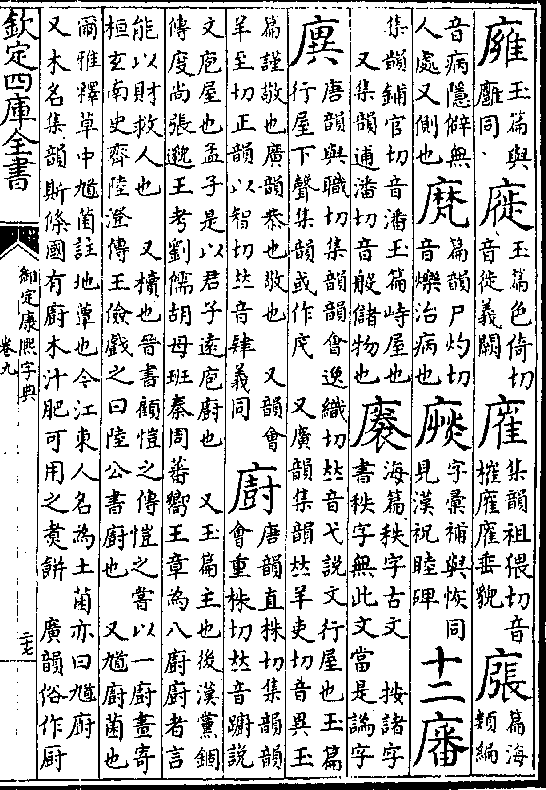 廱玉篇與廱同
𢊁玉篇色倚切音徙義闕
𢊛集韻祖偎切音摧𢊛𢊛垂貌
𢊜篇海類編
音病隱僻無人處又側也
𤸁篇韻尸灼切音爍治病也
𢊍字彙補與恢同見漢祝睦碑
十二
㢖集韻鋪官切音潘玉篇峙屋也
又集韻逋潘切音般儲物也
𢊱海篇秩字古文 按諸字書秩字無此文當是譌字
廙唐韻與職切集韻韻會逸織切𠀤音弋說文行屋也玉篇
行屋下聲集韻或作㡼 又廣韻集韻𠀤羊吏切音異玉
篇謹敬也廣韻恭也敬也 又韻會
羊至切正韻以智切𠀤音肄義同
廚唐韻直株切集韻韻會重株切𠀤音躕說
文庖屋也孟子是以君子遠庖廚也 又玉篇主也後漢黨錮
傳度尚張邈王考劉儒胡母班秦周蕃嚮王章為八廚廚者言
能以財救人也 又櫝也晉書顧愷之傳愷之嘗以一廚畫寄
桓玄南史齊陸澄傳王儉戲之曰陸公書廚也 又馗廚菌也
爾雅釋草中馗菌註地蕈也今江東人名為土菌亦曰馗廚
又木名集韻斯條國有廚木汁肥可用之煑餅 廣韻俗作厨
欽定四庫全書
御定康熙字典
卷九
二七